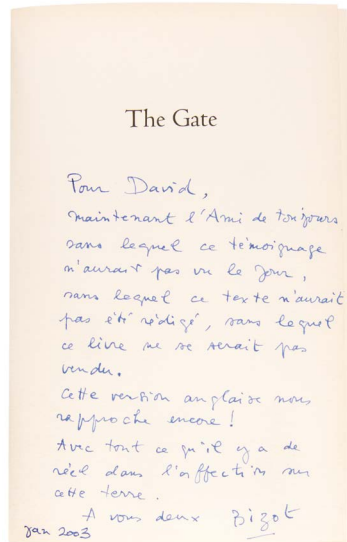 The Gate
Pour David,
maintenant l'Ami de toujours
sans lequel ce témoignage
n'aurait pas vu le Jour,
sans lequel ce texte n'aurait
pas été rédigé, sans lequel
ce livre ne se serait pas
vendu.
Cette version anglaise nous
rapproche encore !
Avec tout ce qu'il y a de
réel dans l'affection sur
cette terre.
A vous deux Bizot
Jan 2003